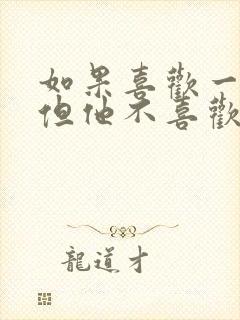 如果喜歡一
但他不喜歡
龍道才